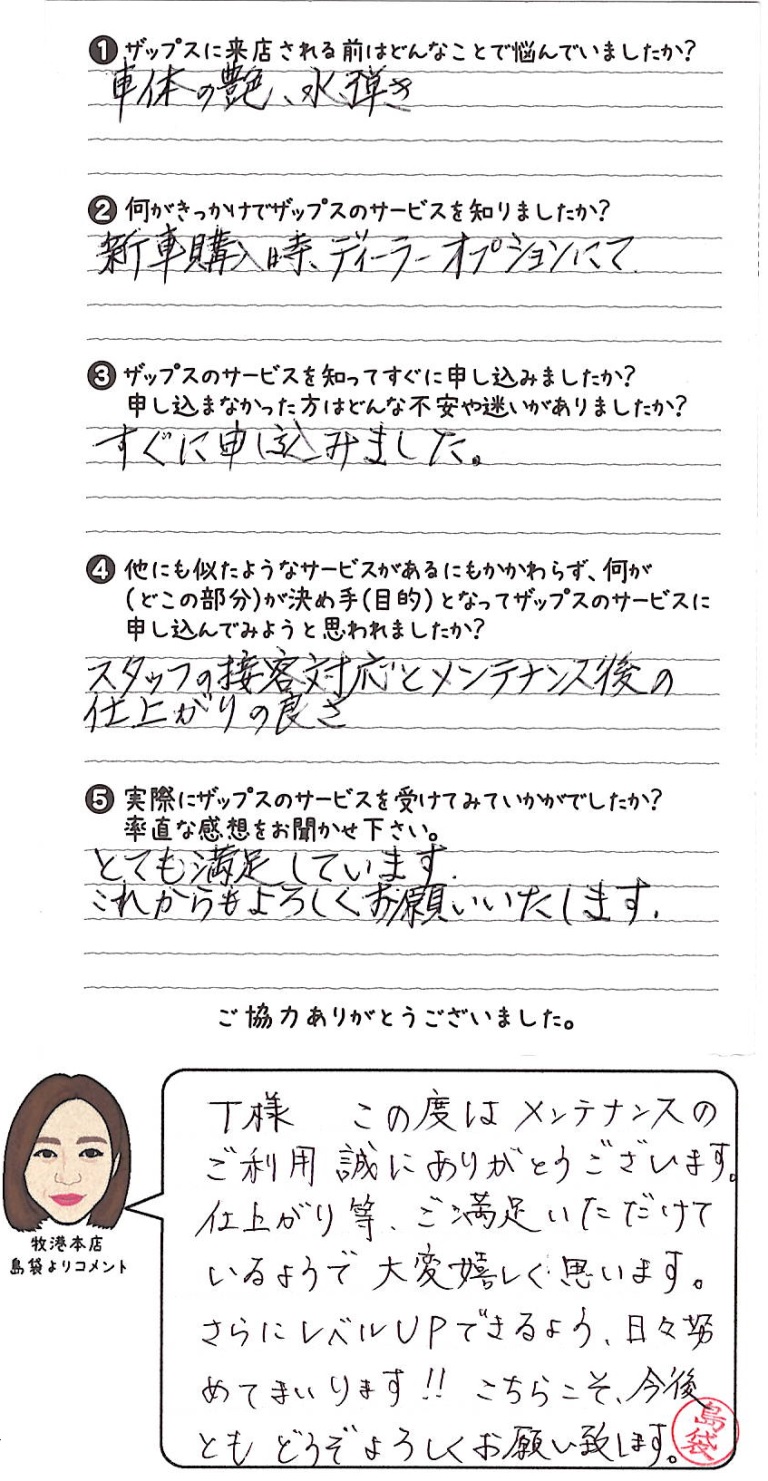 1 ザップスに来店される前はどんなことで悩んでいましたか?
車体の艶、水弾き
2 何がきっかけでザップスのサービスを知りましたか?
新車購入時、ディーラーオプションにて
3 ザップスのサービスを知ってすぐに申し込みましたか?
申し込まなかった方はどんな不安や迷いがありましたか?
すぐに申し込みました。
4 他にも似たようなサービスがあるにもかかわらず、何が
(どこの部分)が決め手(目的)となってザップスのサービスに
申し込んでみようと思われましたか?
スタッフの接客対応とメンテナンス後の
仕上がりの良さ
5 実際にザップスのサービスを受けてみていかがでしたか?
率直な感想をお聞かせ下さい。
とても満足しています.
これからもよろしくお願いいたします.
ご協力ありがとうございました。
T様 この度はメンテナンスの
ご利用誠にありがとうございます。
仕上がり等、ご満足いただけて
いるようで大変嬉しく思います。
さらにレベルUPできるよう、日々努
めてまいります!! こちらこそ、今後
ともどうぞよろしくお願い致します。
島袋
牧港本店
島袋よりコメント